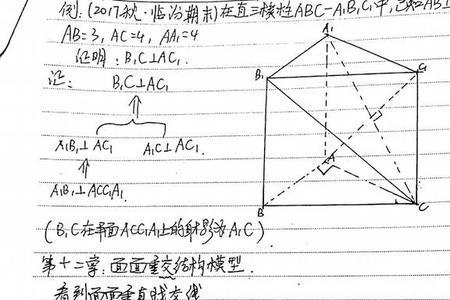 例:(2017秋·临汾期末)在直三棱柱ABC-A₁B₁C₁中,已知AB⊥
AB=3, AC=4, AA₁=4
证明:B₁C⊥AC₁.
证:
B₁C⊥AC₁
⇑
A₁B₁⊥AC₁ A₁C⊥AC₁.
↑
A₁B₁⊥ACC₁A₁.
(B₁C在平面ACC₁A₁上的射影为A₁C).
第十二章:面面垂交结构模型.
看到面面垂直找交线
A₁
B₁
C₁
A
B
C